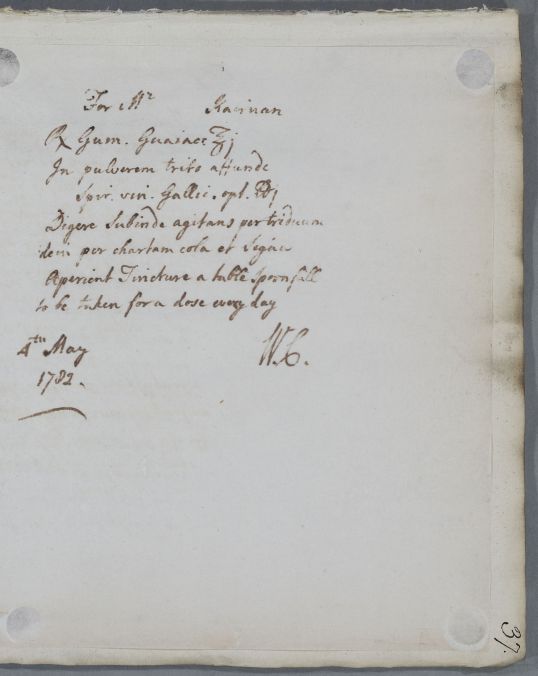 For Mr Kacinan
℞ Gum. Guaiac ℥j
In pulverem trito affunde
Spir. vin. Gallic. opt. ℔j
Digere Subinde agitans per triduum
dein per chartam cola et Signa
Aperient Tincture a table spoonfull
to be taken for a dose every day
4th May W.C.
1782.
37.